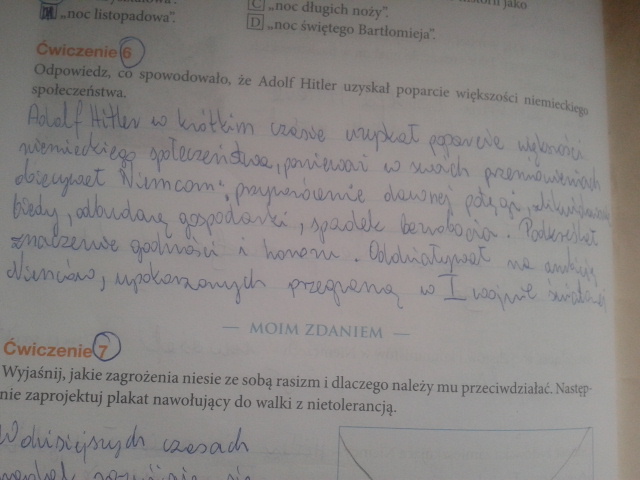 jako
„noc listopadowa”.
C „noc długich noży”.
D „noc świętego Bartłomieja”.
Ćwiczenie 6
Odpowiedz, co spowodowało, że Adolf Hitler uzyskał poparcie większości niemieckiego
społeczeństwa.
Adolf Hitler w krótkim czasie uzyskał poparcie większości
niemieckiego społeczeństwa, ponieważ w swoich przemówieniach
obiecywał Niemcom: przywrócenie dawnej potęgi, zlikwidowanie
biedy, odbudowę gospodarki, spadek bezrobocia. Podkreślał
znaczenie godności i honoru. Oddziaływał na ambicję
Niemców, upokorzonych przegraną w I wojnie światowej
— MOIM ZDANIEM —
Ćwiczenie 7
Wyjaśnij, jakie zagrożenia niesie ze sobą rasizm i dlaczego należy mu przeciwdziałać. Następ-
nie zaprojektuj plakat nawołujący do walki z nietolerancją.
W dzisiejszych czasach